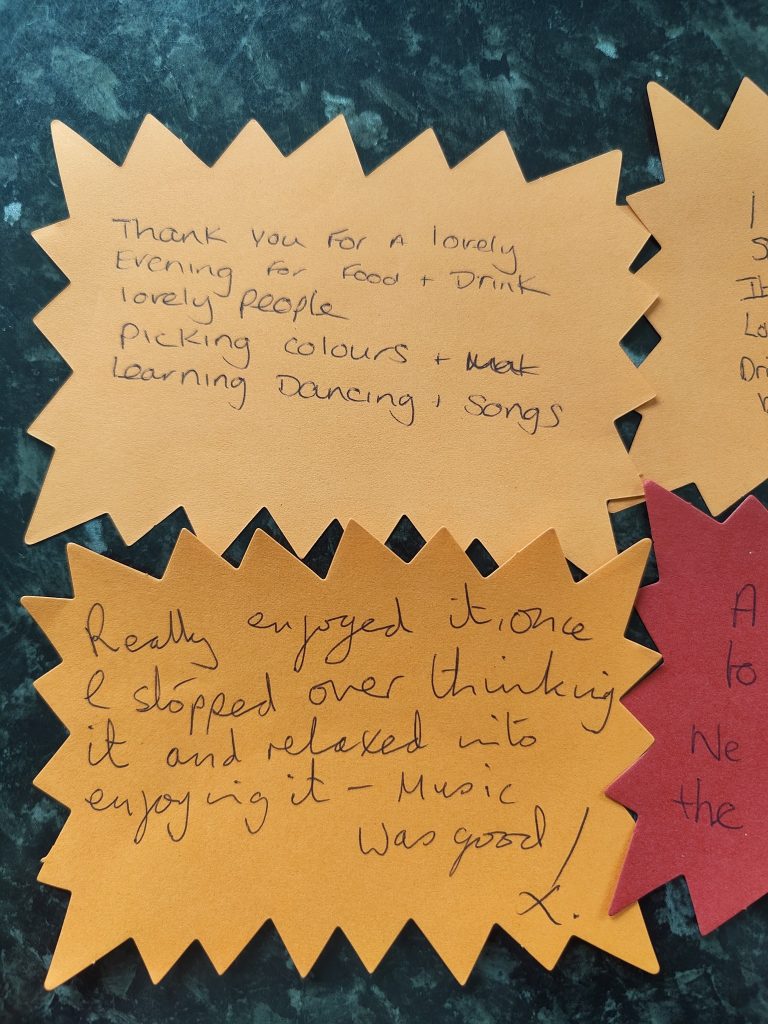 Thank you For A lovely
Evening For Food + Drink
lovely people
Picking colours +
Learning Dancing + Songs
Really enjoyed it, once
I stopped over thinking
it and relaxed into
enjoying it – Music
Was good!
x.
I
S
It
Lo
Dri
A
to
Ne
the